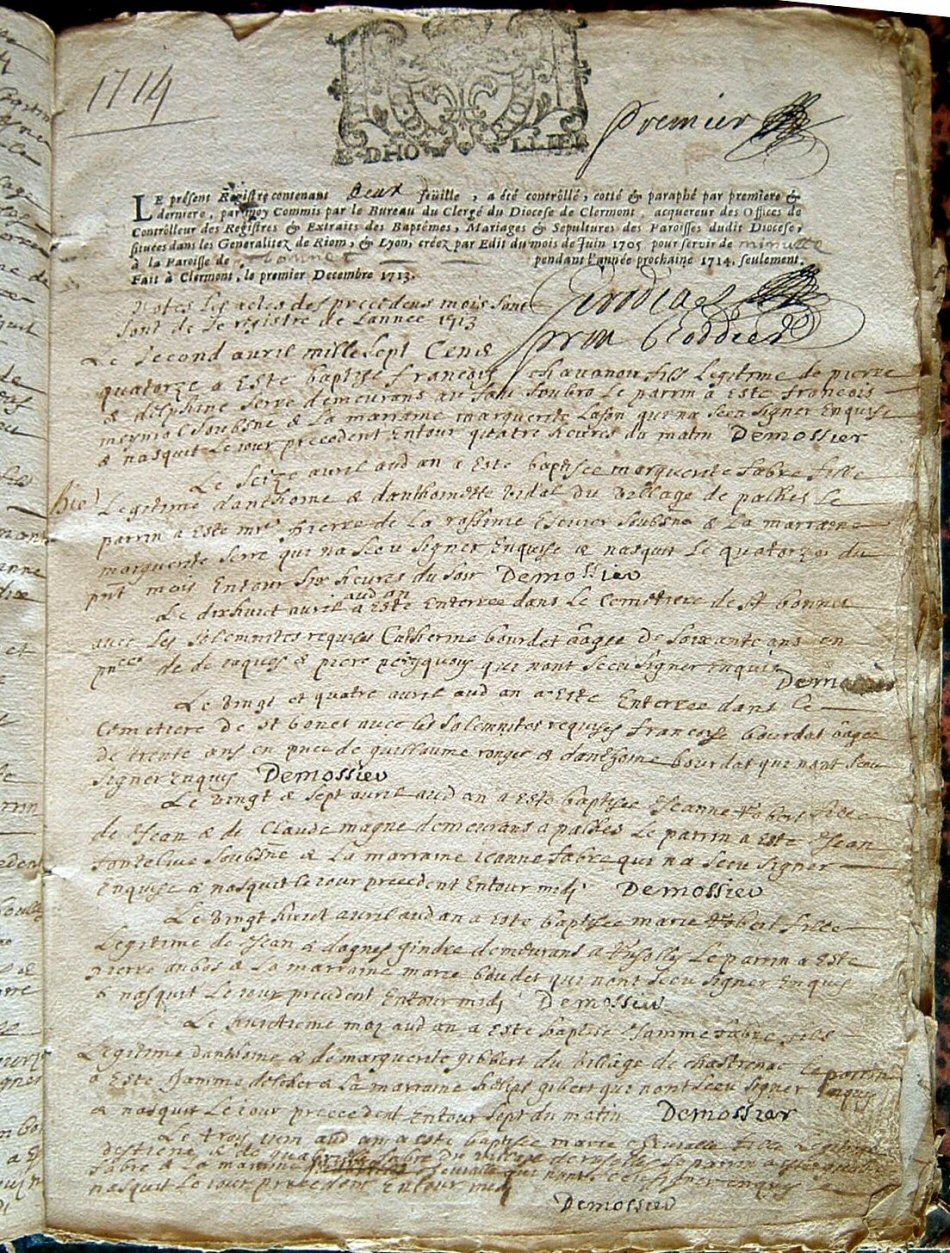 1714
Premier
E·DHO LLIER
LE présent Registre contenant deux feüille, a été contrôlé, cotté & paraphé par premiere &
derniere, par moy Commis par le Bureau du Clergé du Diocese de Clermont, acquereur des Offices de
Contrôlleur des Registres & Extraits des Baptêmes, Mariages & Sepultures des Paroisses dudit Diocese,
situées dans les Generalitez de Riom, & Lyon, créez par Edit du mois de Juin 1705 pour servir de minutte
à la Paroisse de St bonnet pendant l'année prochaine 1714. seulement.
Fait à Clermont, le premier Decembre 1713.
Notes les actes des precedens mois sont
sont de le registre de lannee 1713
Le second avril mille sept Cens
quatorze a Este baptise francois chavanon fils Legitime de pierre
& delphine serre demeurans au Le parrin a este francois
meyniol soubsne & La marraine marguerite que na sceu signer Enquise
& nasquit le iour precedent Entour quatre heures du matin Demossier
Le seize avril aud an a Este baptisée marguerite fabre fille
Legitime danthoine & danthoinette vidal du village de palhes Le
parrin a este mre pierre de la Escuier soubsne & La marraine
marguerite serre qui na sceu signer Enquise & nasquit Le quatorze du
pnt mois Entour six heures du soir Demossier
Le dixhuict avril aud an a Este Enterree dans Le Cemetiere de St bonnet
avec les solemnites requises Catherine bourdet âagee de soixante ans en
pnce de de & piere qui nont sceu signer Enquis Demossier
Le vingt et quatre avril aud an a Este Enterree dans le
Cemetiere de St bonet avec les solemnites requises francoise bourdat âagee
de trente ans en pnce de guillaume & danthoine bourdat qui nont sceu
signer Enquis Demossier
Le vingt & sept avril aud an a Este baptisee Jeanne Robert fille
de Jean & de Claude magne demeurans a palhes Le parrin a Este Jean
fontelive soubsne & La marraine ieanne fabre qui na sceu signer
Enquise & nasquit le iour precedent Entour midi Demossier
Le vingt huict avril aud an a Este baptisee marie Robert fille
Legitime de Jean & dagnes gindre demeurans a Le parrin a Este
pierre & La marraine marie boudet qui nont sceu signer Enquis
& nasquit Le iour precedent Entour midi Demossier
Le may aud an a Este baptise Jamme fabre fils
Legitime danthoine & de marguerite gibbert du village de chastrenac Le parrin
a Este Jamme & La marraine gibert qui nont sceu signer Enquis
& nasquit Le iour precedent Entour sept du matin Demossier
Le troy iuin aud an a este baptisee marie fille Legitime
destiene & de fabre du village de Le parrin a este
fabre & La marraine qui nont sceu signer enquis
nasquit Le iour precedent Entour midi
Demossier